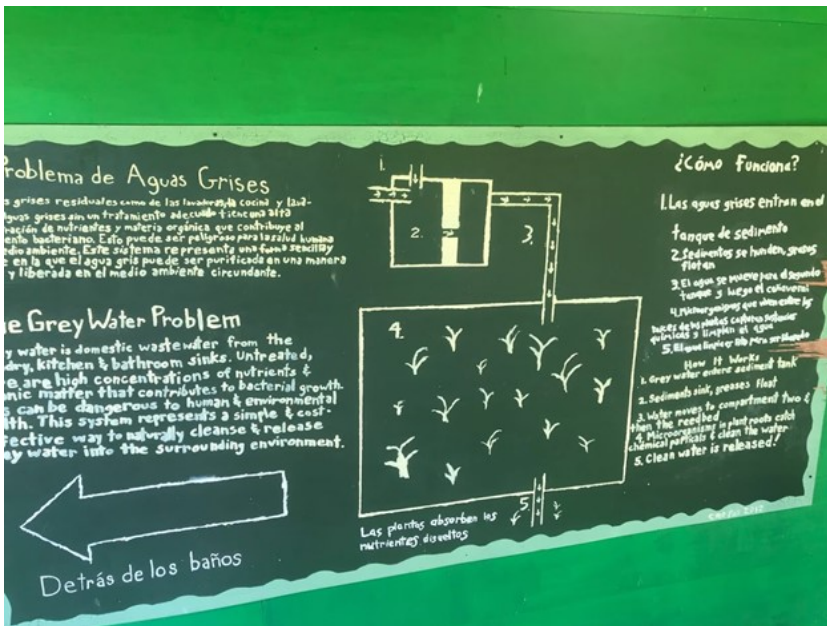 roblema de Aguas Grises
s grises residuales como de las lavadoras, la cocina y lava-
guas grises sin un tratamiento adecuado tiene una alta
ración de nutrientes y materia orgánica que contribuye al
ento bacteriano. Esto puede ser peligroso para la salud humana
edio ambiente. Este sistema representa una forma sencilla y
e en la que el agua gris puede ser purificada en una manera
y liberada en el medio ambiente circundante.
e Grey Water Problem
y water is domestic wastewater from the
dry, kitchen & bathroom sinks. Untreated,
e are high concentrations of nutrients &
nic matter that contributes to bacterial growth.
s can be dangerous to human & environmental
lth. This system represents a simple & cost-
fective way to naturally cleanse & release
ey water into the surrounding environment.
Detrás de los baños
1.
2.
3.
4.
5.
Las plantas absorben los
nutrientes disueltos
¿Cómo Funciona?
1. Las aguas grises entran en el
tanque de sedimento
2. Sedimentos se hunden, grasas
flotan
3. El agua se mueve para el segundo
tanque y luego el
4. Microorganismos que viven entre las
raíces de las plantas capturan
químicas y limpian el agua
5. El agua limpia
How It Works
1. Grey water enters sediment tank
2. Sediments sink, greases float
3. Water moves to compartment two &
then the reedbed
4. Microorganisms in plant roots catch
chemical particals & clean the water
5. Clean water is released!